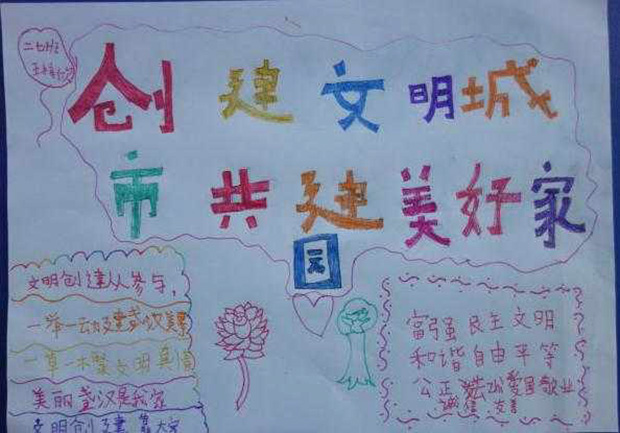 二七班
创建文明城
市共建美好家
园
文明创建人人参与,
一举一动
一草一木 文明
美丽 汉是我家
文明创建靠大家
富强 民主 文明
和谐 自由 平等
公正 法治 爱国 敬业
诚信 友善